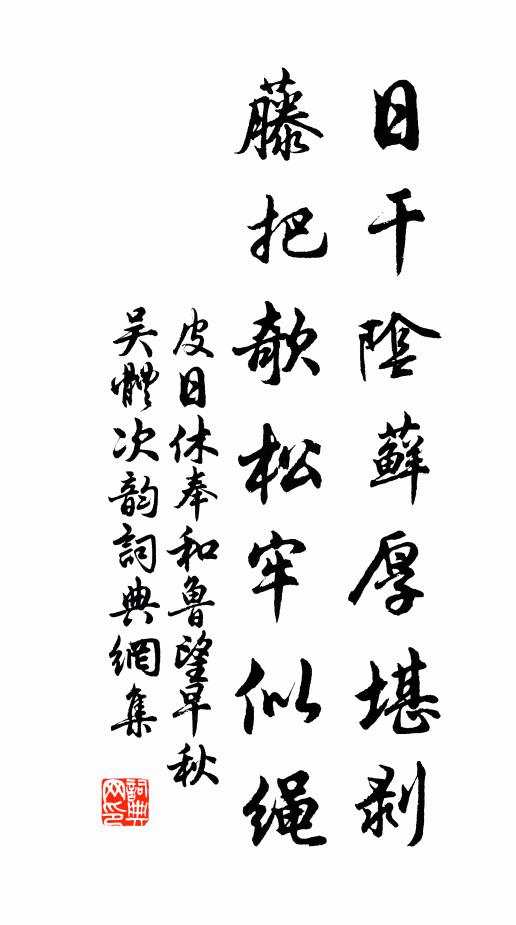 日干陰蘚厚堪剥
藤把欹松牢似绳
皮日休奉和鲁望早秋
吴體次韵詞典網集
詞典
网印